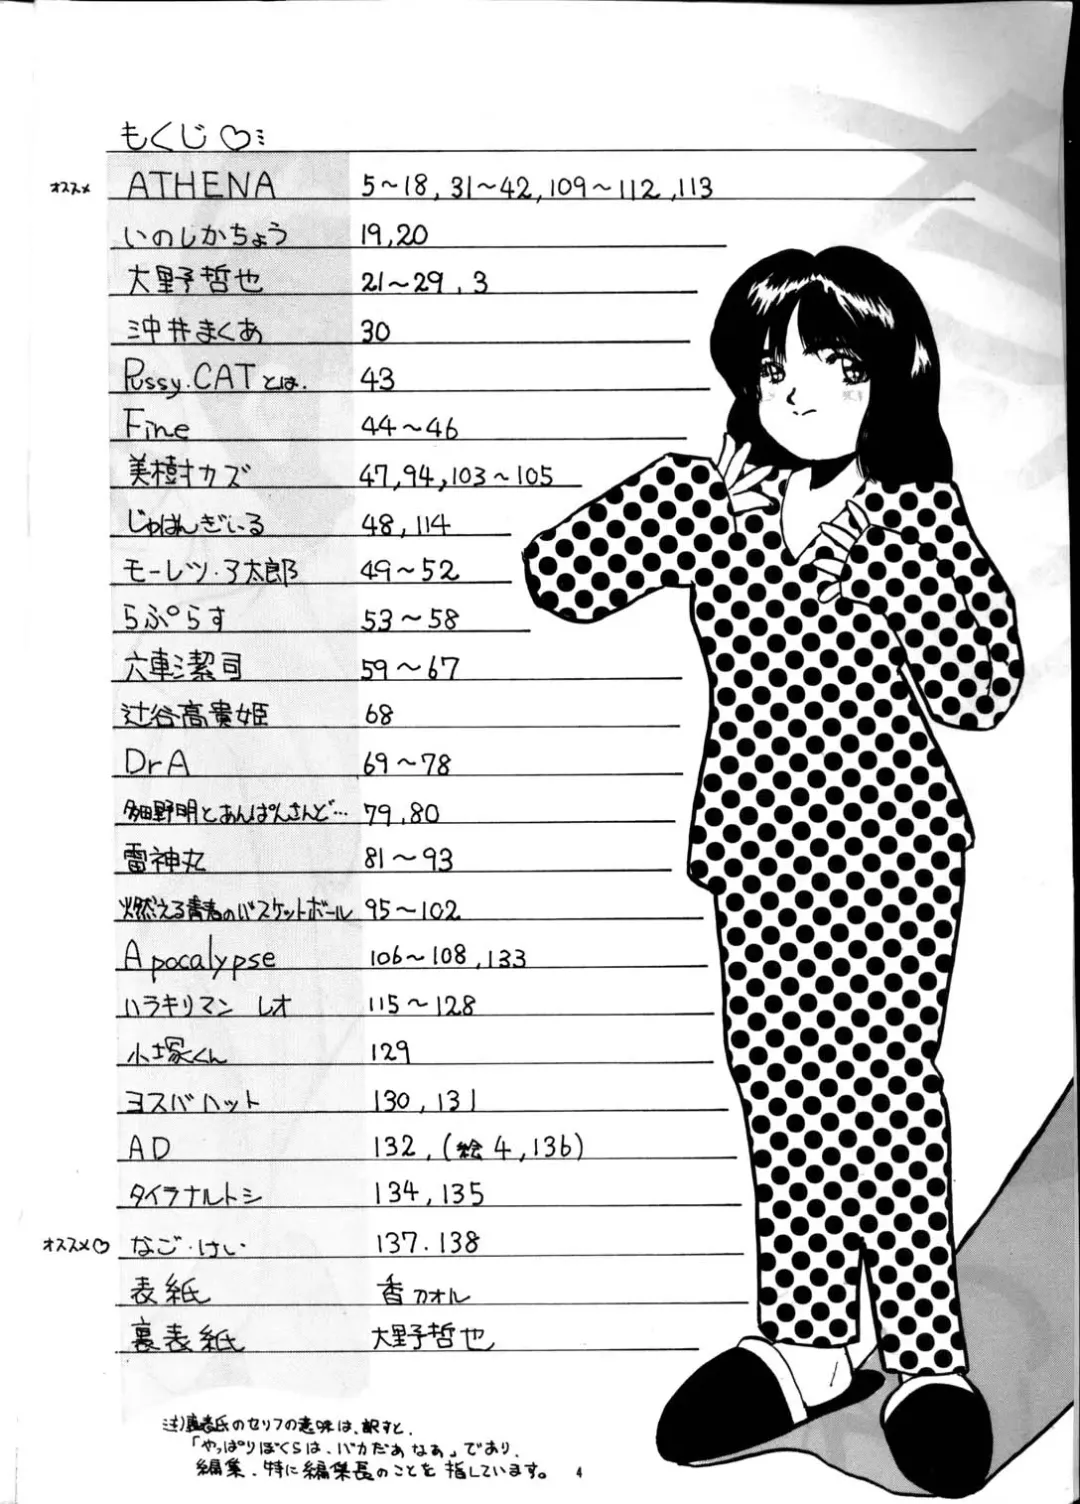 もくじ♡ミ
オススメ ATHENA 5〜18, 31〜42, 109〜112, 113
いのしかちょう 19, 20
大野哲也 21〜29, 3
沖井まくあ 30
Pussy・CATとは. 43
Fine 44〜46
美樹カズ 47, 94, 103〜105
じゅばんぎぃる 48, 114
モーレツ・ア太郎 49〜52
らぷらす 53〜58
六車潔司 59〜67
辻谷高貴姫 68
DrA 69〜78
多田野明とあんぱんさんど… 79, 80
雷神丸 81〜93
燃える青春のバスケットボール 95〜102
Apocalypse 106〜108, 133
ハラキリマン レオ 115〜128
小塚くん 129
ヨスバハット 130, 131
AD 132, (絵 4, 136)
タイラナルトシ 134, 135
オススメ♡ なご・けい 137. 138
表紙 香カオル
裏表紙 大野哲也
注)裏表氏のセリフの意味は、訳すと、
「やっぱりぼくらは、バカだあ なあ」であり、
編集、特に編集長のことを指しています。
4